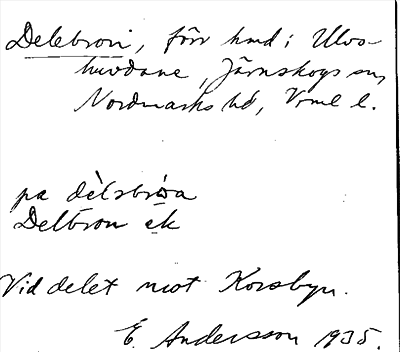 Delebron, förr hmd i Ulvs-
huvdane, Järnskogs sn,
Nordmarks hd, Vrml l.
pa dèlsbróa
Delbron ek
Vid delet mot Korsbyn.
E. Andersson 1935.